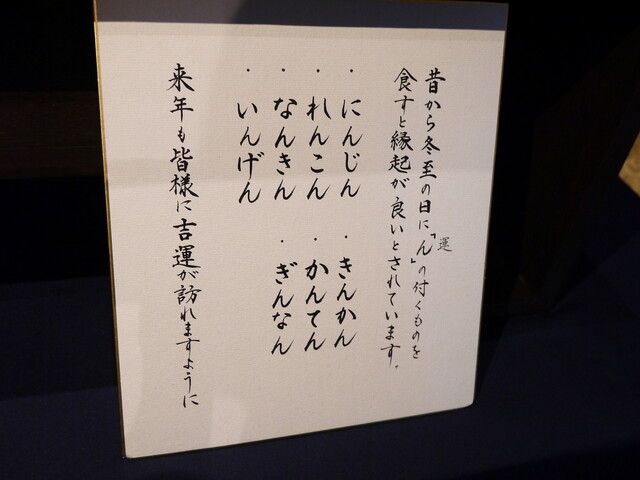 昔から冬至の日に「ん」の付くものを
運
食すと縁起が良いとされています。
・にんじん ・きんかん
・れんこん ・かんてん
・なんきん ・ぎんなん
・いんげん
来年も皆様に吉運が訪れますように